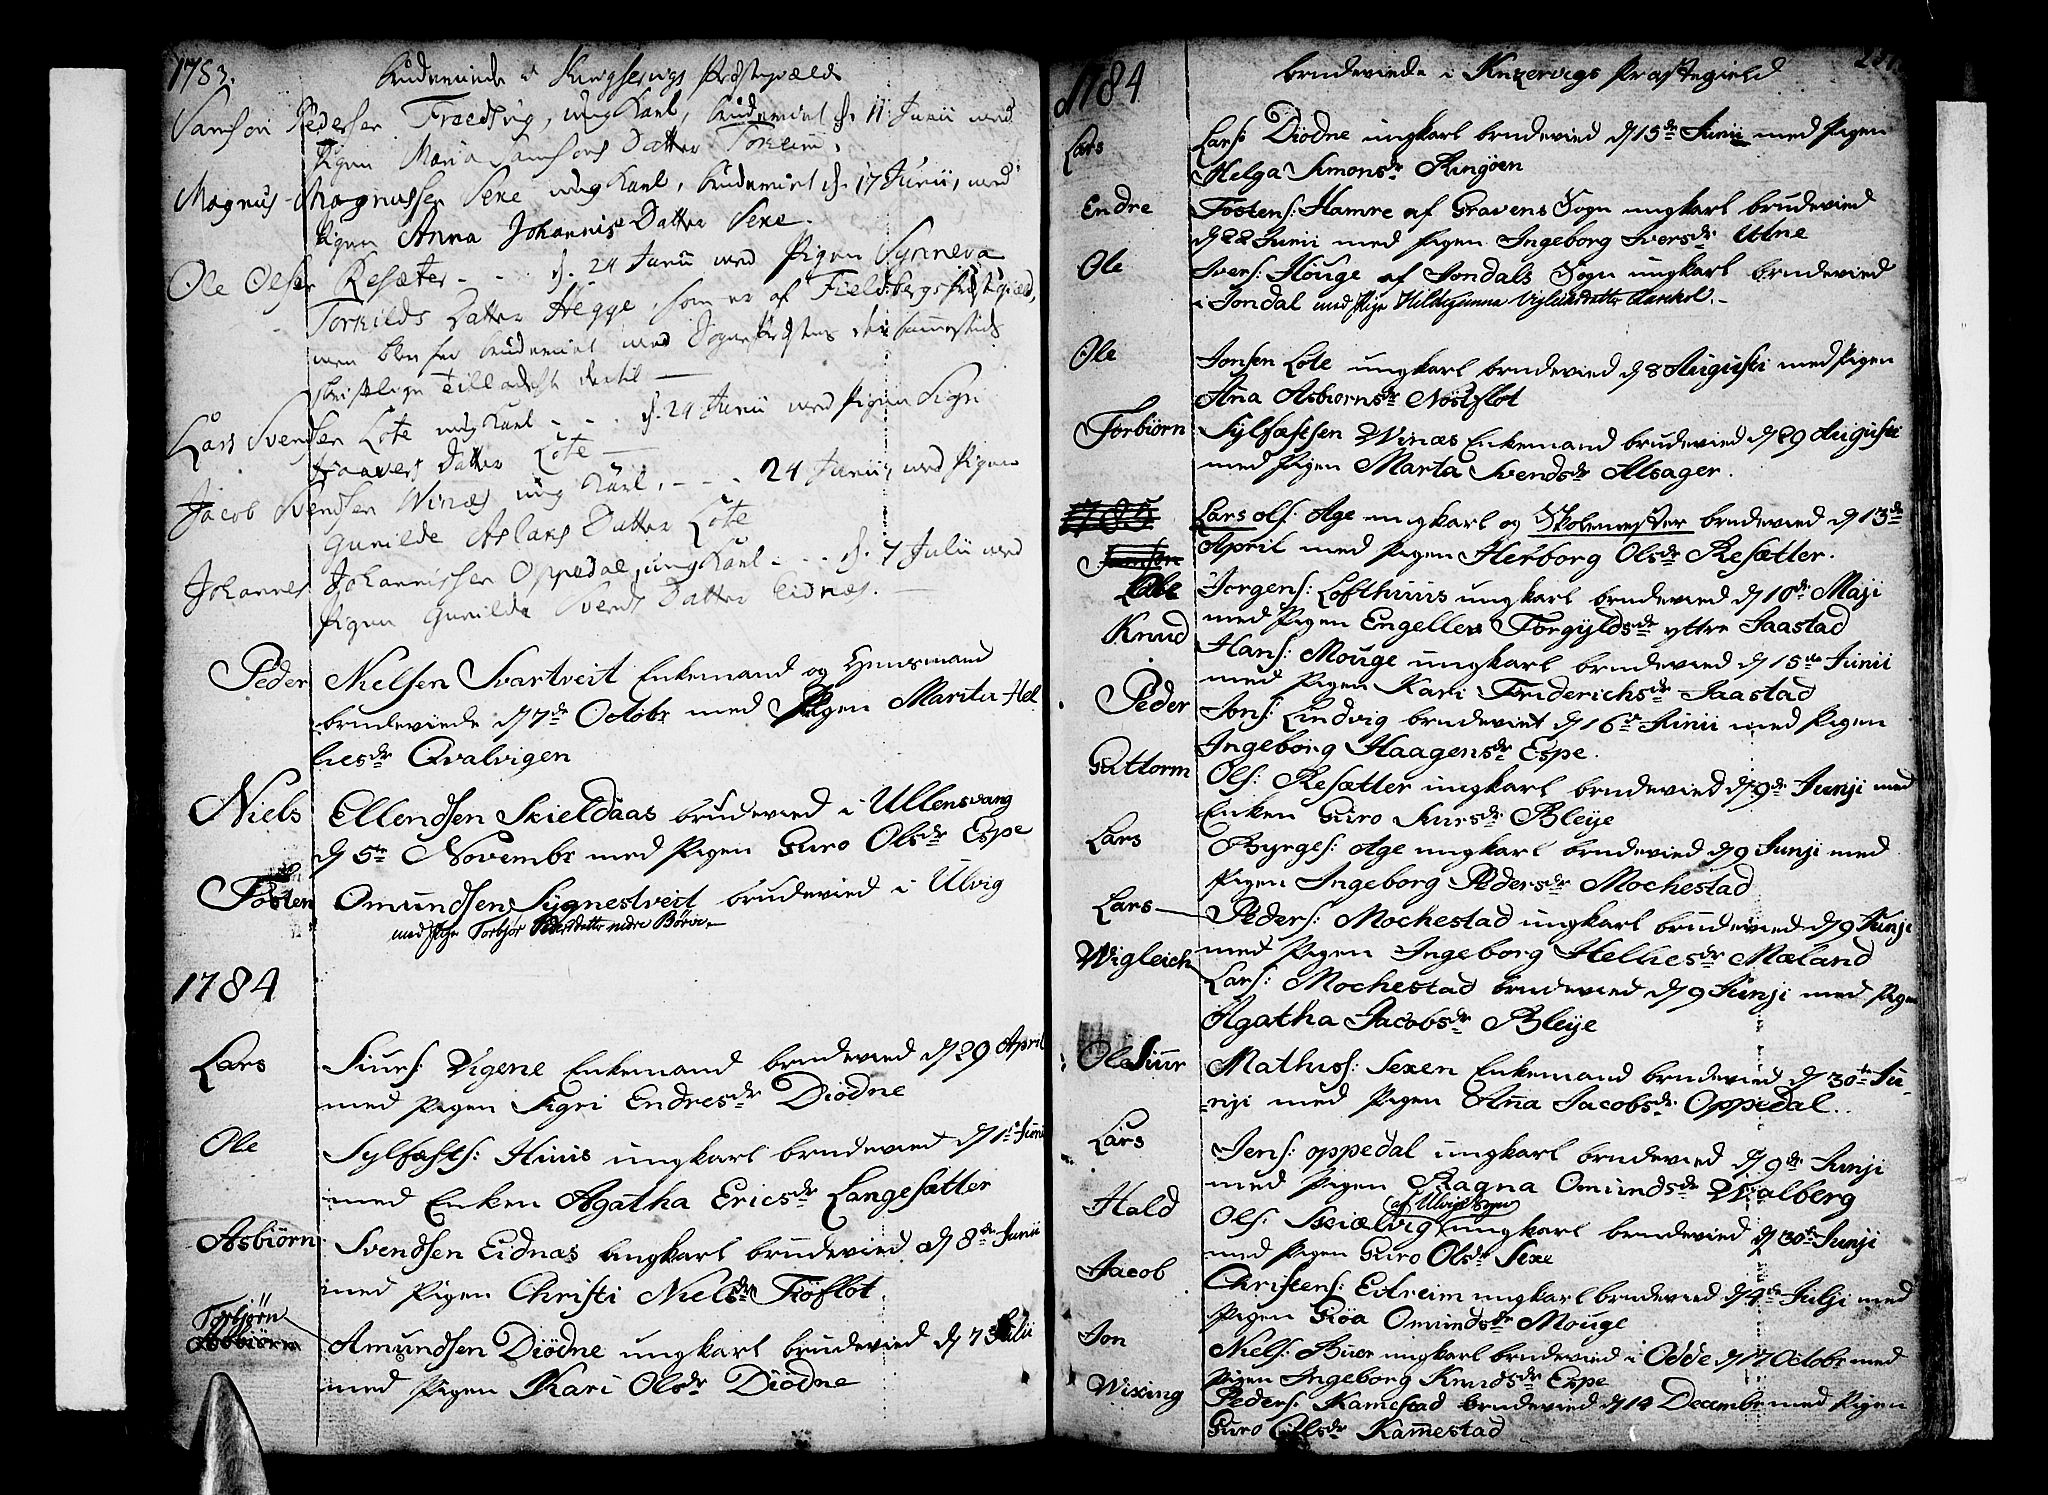 1783. brudeviede i Præstegield
Samson Pedersen Ung Karl, brudeviet d. 11 Junii med
Pigen Maria Samsons Datter
Magnus Magnussen Sexe ung Karl, brudeviet d. 17 Junii, med
Pigen Anna Johannis Datter Sexe.
Ole Olsen Resæter - - d. 24 Junii med Pigen Synneva
Torkilds Datter Hegge, som er af Præstegield,
men blev her brudeviet med Sogne Præstens
skriftlige Tilladelse dertil
Lars Svendsen Lote ung Karl - - - d. 24 Junii med Pigen Sigri
Haavers Datter Lote
Jacob Svendsen Winæs ung Karl, - - - 24 Junii, med Pigen
Gunilde Aslaks Datter Lote
Johannes Johannissen Oppedal, ung Karl - - - d. 7 Julii med
Pigen Gunilda Svends Datter Eidnæs.
Peder Nielsen Svartveit Enkemand og Huusmand
brudeviede d 7de Octobr med Pigen Marita Hel
liesdr Qvalvigen
Niels Ellendsen Skieldaas brudevied i Ullensvang
d 5te Novembr med Pigen Guro Olsdr Espe
Tosten Omundsen Sygnestveit brudevied i Ulvig
med Pige Torbjør Pedersdatter nedre Børve
1784
Lars Siurs: Vigene Enkemand brudevied d 29 April
med Pigen Sigri Endresdr Diödne
Ole Sylfæsts: Huus ungkarl brudevied d 1te Junii
med Enken Agatha Ericsdr Langesætter
Asbiörn Svendsen Eidnas ungkarl brudevied d 8de Junii
med Pigen Christi Nielsdr Tiöflot.
Torbjørn
Asbiörn Amundsen Diödne ungkarl brudevied d 7 Julii
med Pigen Kari Olsdr Diödne
1784 brudeviede i Kinzervigs Præstegield
Lars Lars: Diödne ungkarl brudevied d 15de Junii med Pigen
Helga Simonsdr Ringöen
Endre Tostens: Hamre af Gravens Sogn ungkarl brudevied
d 22 Junii med Pigen Ingeborg Iversdr Utne
Ole Ivers: Houge af Jondals Sogn ungkarl brudevied
i Jondal med Pige Hildegunna Viglichsdatter
Ole Jonsen Lote ungkarl brudevied d 8 Augusti med Pigen
Ana Asbiornsdr Nöstflot
Torbiörn Sylfæstsen Winæs Enkemand brudevied d 29 Augusti
med Pigen Marta Svendsdr Alsager.
1785 Lars Ols: Age ungkarl og Skolemester brudevied d 13de
April med Pigen Herborg Olsdr Resætter.
Ole Jorgens: Lofthuus ungkarl brudevied d 10de Maji
med Pigen Engelleu Torgyldsdr yttre Jaastad
Knud Hans: Mouge ungkarl brudevied d 15de Junii
med Pigen Kari Friderichsdr Jaastad
Peder Jons: Lindvig brudeviet d 16de Junii med Pigen
Ingeborg Haagensdr Espe.
Guttorm Ols: Resætter ungkarl brudevied d 9de Junji med
Enken Guro Siursdr Bleye
Lars Byrges: Age ungkarl brudevied d 9 Junji med
Pigen Ingeborg Pedersdr Mochestad
Lars Peders: Mochestad ungkarl brudevied d 9 Junji
med Pigen Ingeborg Helliesdr Mæland
Wigleich Lars: Mochestad brudevied d 9 Junji med Pigen
Agatha Jacobsdr Bleye
Ole Siur Mathiss: Sexen Enkemand brudevied d 30te Ju-
nji med Pigen Ana Jacobsdr Oppedal.
Lars Jens: Oppedal ungkarl brudevied d 9de Junji
med Pigen Ragna Omundsdr Walberg
af Ulvigs Sogn
Hald Ols: Skiælvig ungkarl brudevied d 30te Junji
med Pigen Guro Olsdr Sexe
Jacob Christens: Edreim ungkarl brudevied d 4de Julji med
Pigen Gröa Omundsdr Mouge
Jon Niels: Buer ungkarl brudevied i Odde d 17 Octobr med
Pigen Ingeborg Knudsdr Espe
Wixing Peders: Kamestad brudevied d 14 Decembr med Pigen
Guro Olsdr Kamestad